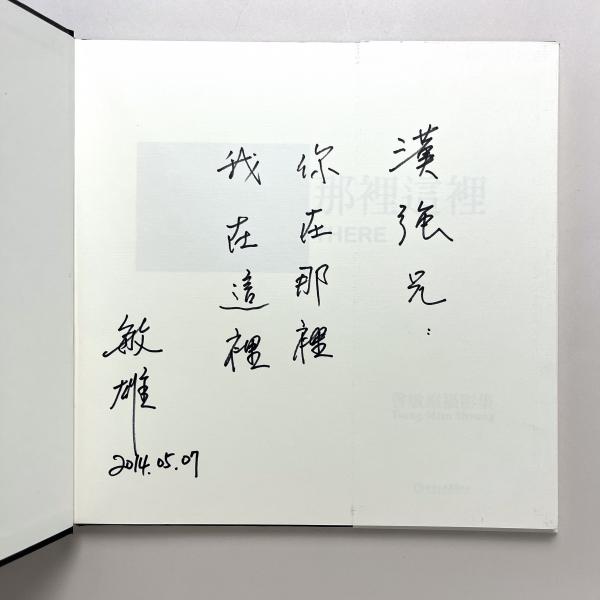 漢強兄:
你在那裡
我在這裡
敏雄
2014.05.07
那裡這裡
HERE
曾敏雄攝影集
Tseng Mien Shiung